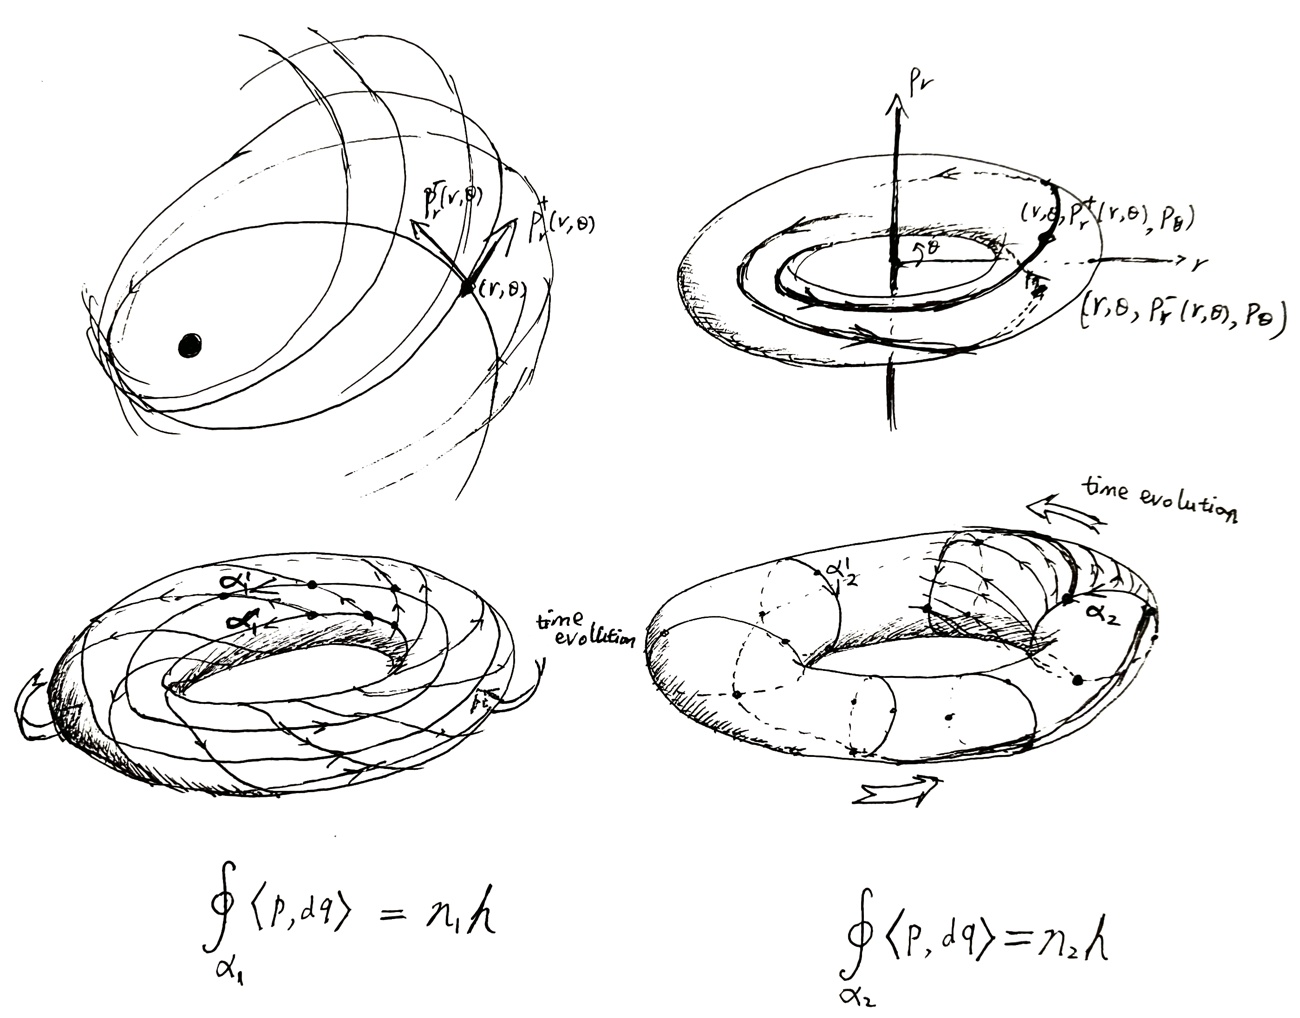 p_r^-(r,θ)
p_r^+(r,θ)
(r,θ)
p_r
(r,θ,p_r^+(r,θ),p_θ)
θ
r
(r,θ,p_r^-(r,θ),p_θ)
time evolution
α_1'
α_1
time
evolution
α_2'
α_2
∮_{α_1} ⟨p,dq⟩ = n_1h
∮_{α_2} ⟨p,dq⟩ = n_2h